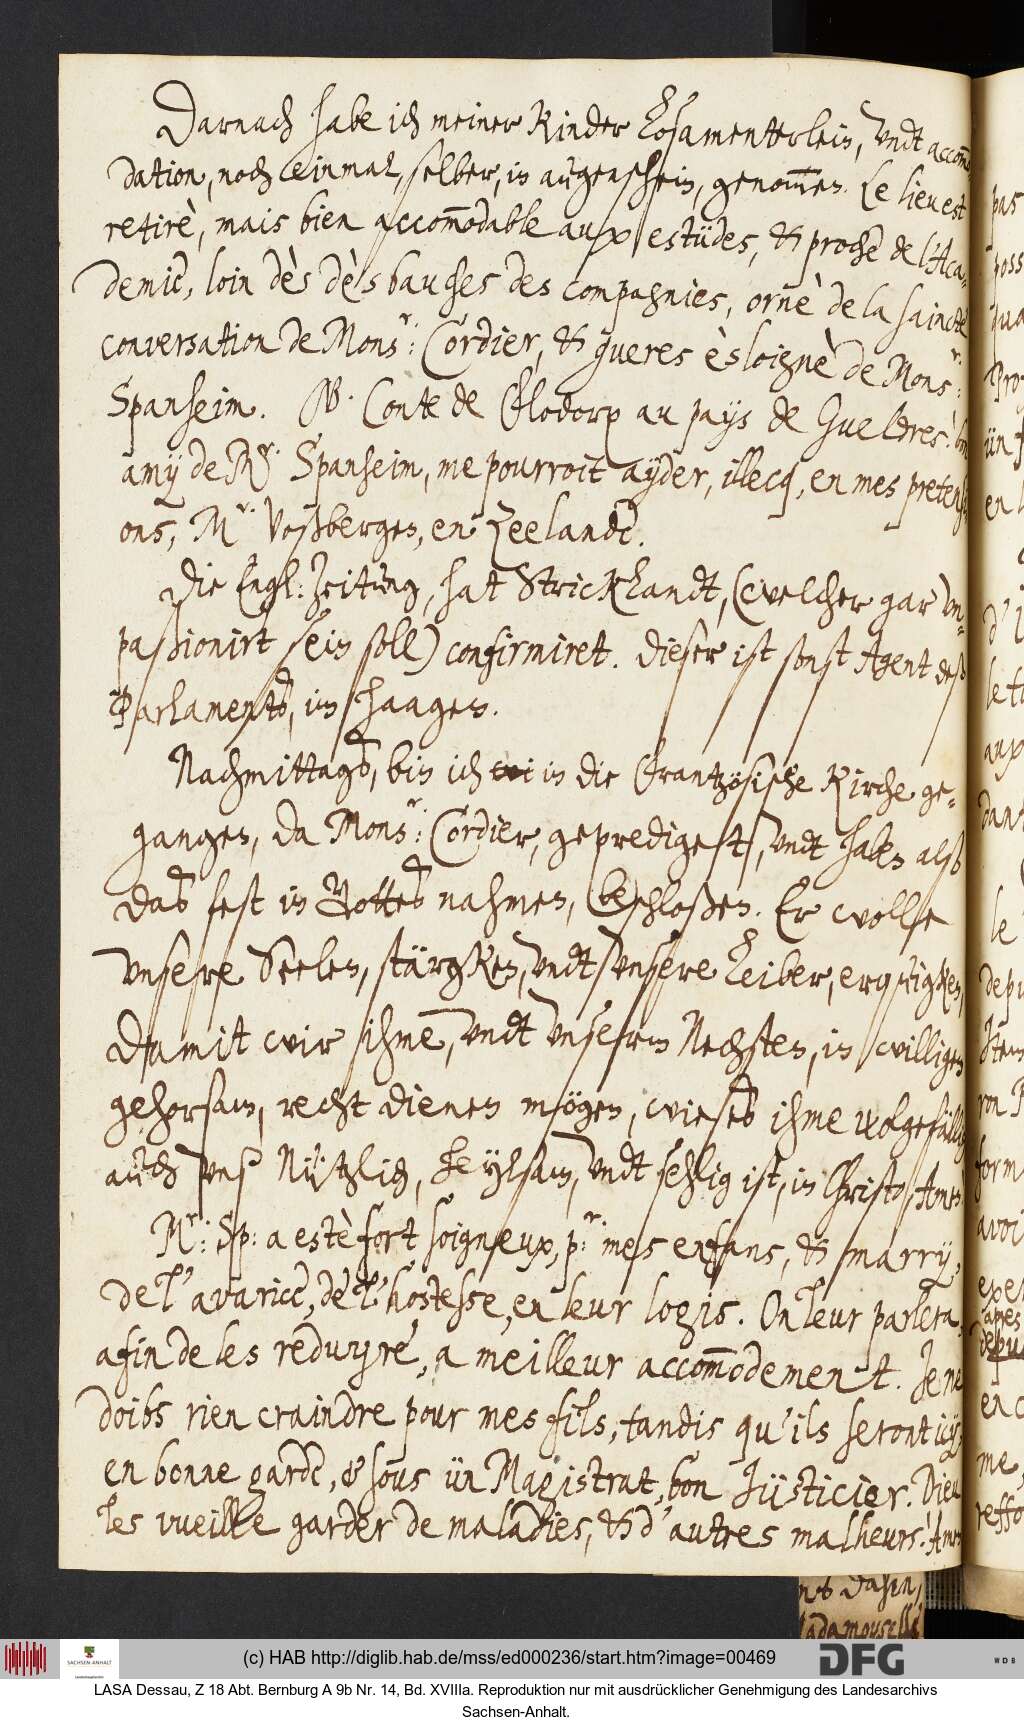 Darnach habe ich meiner Kinder Losamenterlein, vndt accom̅o
dation, noch einmal, selber, in augenschein, genom̅en. Le lieu est
retirè, mais bien accom̅odable aux estüdes, & proche de l'Aca-
demie, loin dès dèsbauches des compagnies, ornè de la saincte
conversation de Monsr: Cordier, & gueres èsloignè de Monsr:
Spanheim. NB. Conte de Flodorp au païs de Gueldres: bon
amÿ de Mr. Spanheim, me pourroit ayder, illecq, en mes pretensi
ons, Mr: Voßbergen, en Zeelande.
Die Engl: Zeitung, hat Strickhlandt, (welcher gar vn-
paßionirt sein soll) confirmiret. Dieser ist sonst Agent deß
Parlaments, im Haagen.
Nachmittags, bin ich in die Frantzösische Kirche ge-
gangen, da Monsr: Cordier, geprediget, vndt haben also
das fest in Gottes nahmen, beschloßen. Er wolle
vnsere Seelen, stärgken, vndt vnsere Leiber, erqwigken,
Damit wir ihme, vndt vnserm Nechsten, in willigem
gehorsam, recht dienen mögen, wie es ihme wolgefällig
auch vns Nützlich, heylsam, vndt sehlig ist, in Christo, Amen.
Mr: Sp: a estè fort soigneux, pr: mes enfans, & marry,
de l'avarice, de l'hostesse, en leur logis. On leur parlera,
afin de les reduyre, a meilleur accom̅odement. Je ne
doibs rien craindre pour mes fils, tandis qu'ils seront icy,
en bonne garde, & sous ün Magistrat, bon Jüsticier. Dieu
les vueille garder de maladies, & d'autres malheurs: Amen
pas
poss
Pro
ün f
en l
d'i
le f
aux
dans
le
depu
Item
ron
form
avoi
exe
apres
depu
en c
me,
reffo
(c) HAB http://diglib.hab.de/mss/ed000236/start.htm?image=00469
SACHSEN-ANHALT
DFG
WDB
LASA Dessau, Z 18 Abt. Bernburg A 9b Nr. 14, Bd. XVIIIa. Reproduktion nur mit ausdrücklicher Genehmigung des Landesarchivs
Sachsen-Anhalt.